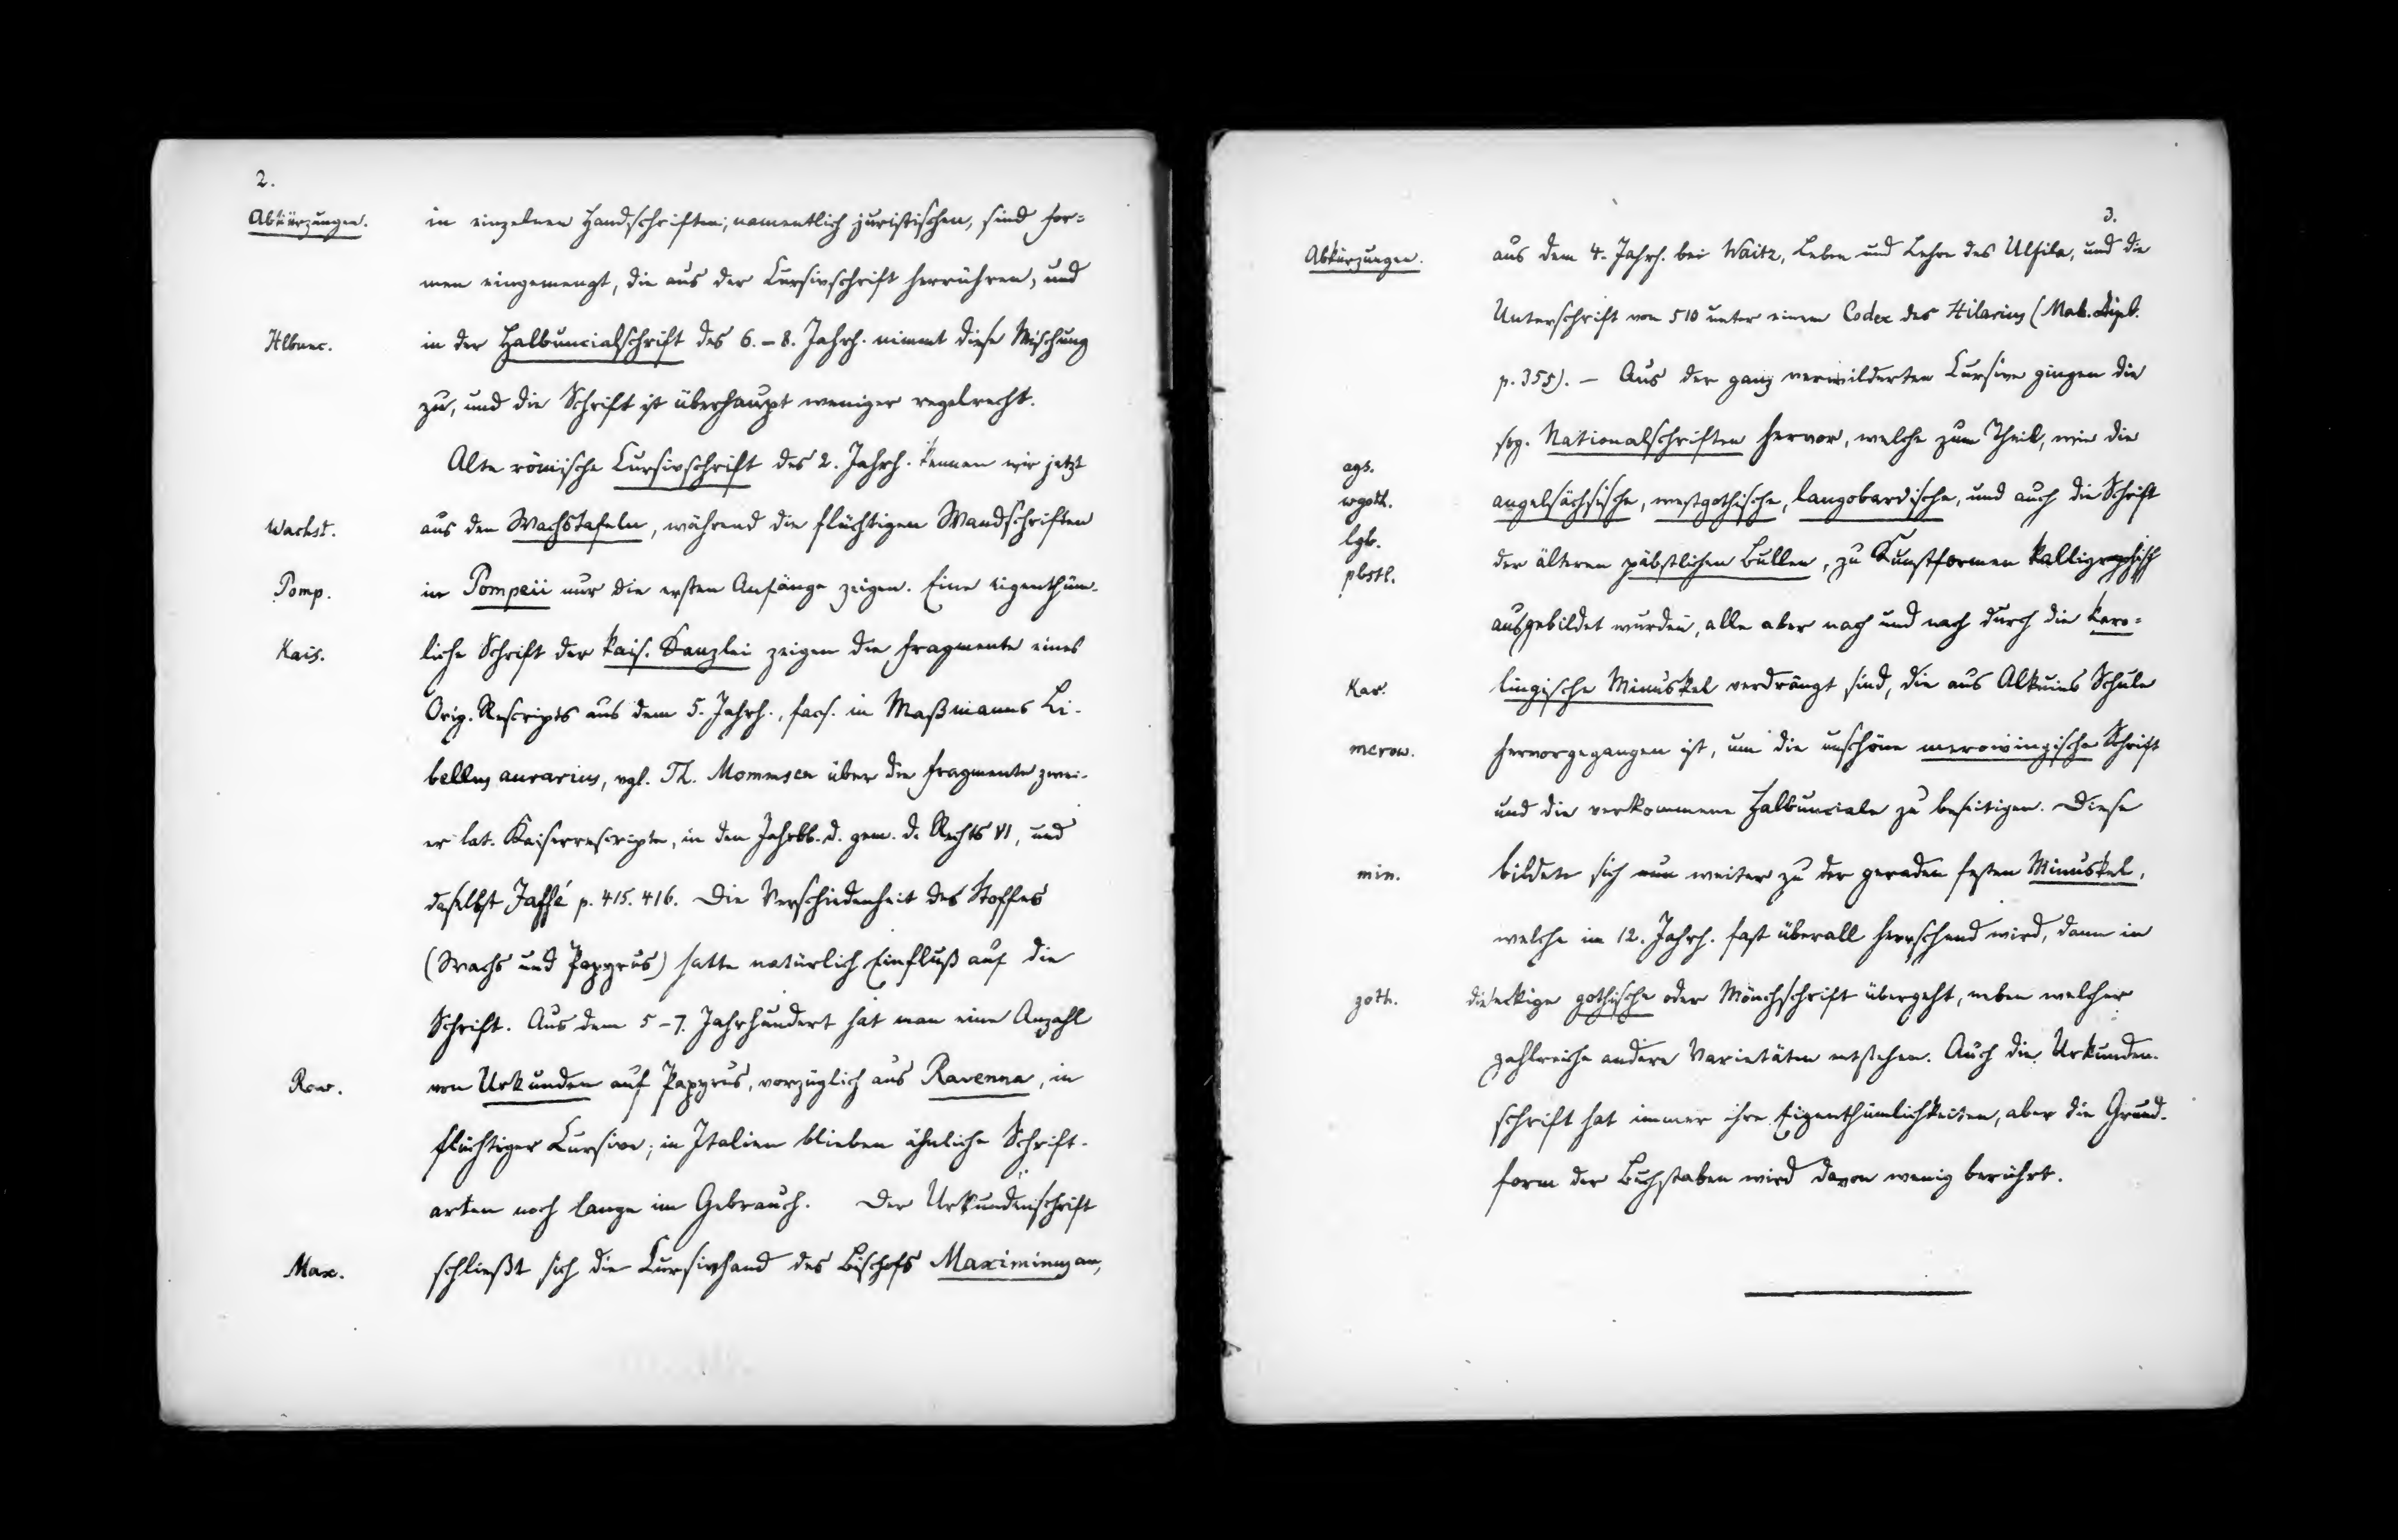 2.
Abkürzungen.
in einzelnen Handschriften, namentlich juristischen, sind For=
men eingemengt, die aus der Cursivschrift herrühren, und
Hlbunc.
in der Halbuncialschrift des 6.–8. Jahrh. nimmt diese Mischung
zu, und die Schrift ist überhaupt weniger regelrecht.
Alte römische Cursivschrift des 2. Jahrh. kennen wir jetzt
Wachst.
aus den Wachstafeln, während die flüchtigen Wandschriften
Pomp.
in Pompeii nur die ersten Anfänge zeigen. Eine eigenthüm-
Kais.
liche Schrift der kais. Kanzlei zeigen die Fragmente eines
Orig. Rescripts aus dem 5. Jahrh., facs. in Maßmanns Li-
bellus aurarius, vgl. Th. Mommsen über die Fragmente zwei-
er lat. Kaiserrescripte, in den Jahrbb. d. gem. d. Rechts VI, und
daselbst Jaffé p. 415. 416. Die Verschiedenheit des Stoffes
(Wachs und Papyrus) hatte natürlich Einfluß auf die
Schrift. Aus dem 5–7. Jahrhundert hat man eine Anzahl
Rav.
von Urkunden auf Papyrus, vorzüglich aus Ravenna, in
flüchtiger Cursive; in Italien blieben ähnliche Schrift-
arten noch lange im Gebrauch. Der Urkundenschrift
Max.
schließt sich die Cursivhand des Bischofs Maximinus an,
3.
Abkürzungen.
aus dem 4. Jahrh. bei Waitz, Leben und Lehre des Ulfila, und die
Unterschrift von 510 unter einem Codex des Hilarius (Mab. Dipl.
p. 355). – Aus der ganz verwilderten Cursive gingen die
sog. Nationalschriften hervor, welche zum Theil, wie die
ags.
wgoth.
angelsächsische, westgothische, langobardische, und auch die Schrift
lgb.
pbstl.
der älteren päbstlichen Bullen, zu Kunstformen kalligraphisch
ausgebildet wurden, alle aber nach und nach durch die karo=
Kar.
lingische Minuskel verdrängt sind, die aus Alkuins Schule
merow.
hervorgegangen ist, um die unschöne merowingische Schrift
und die verkommene Halbunciale zu beseitigen. Diese
min.
bildete sich nun weiter zu der geraden festen Minuskel,
welche im 12. Jahrh. fast überall herrschend wird, dann in
goth.
die eckige gothische oder Mönchschrift übergeht, neben welcher
zahlreiche andere Varietäten entstehen. Auch die Urkunden-
schrift hat immer ihre Eigenthümlichkeiten, aber die Grund-
form der Buchstaben wird davon wenig berührt.